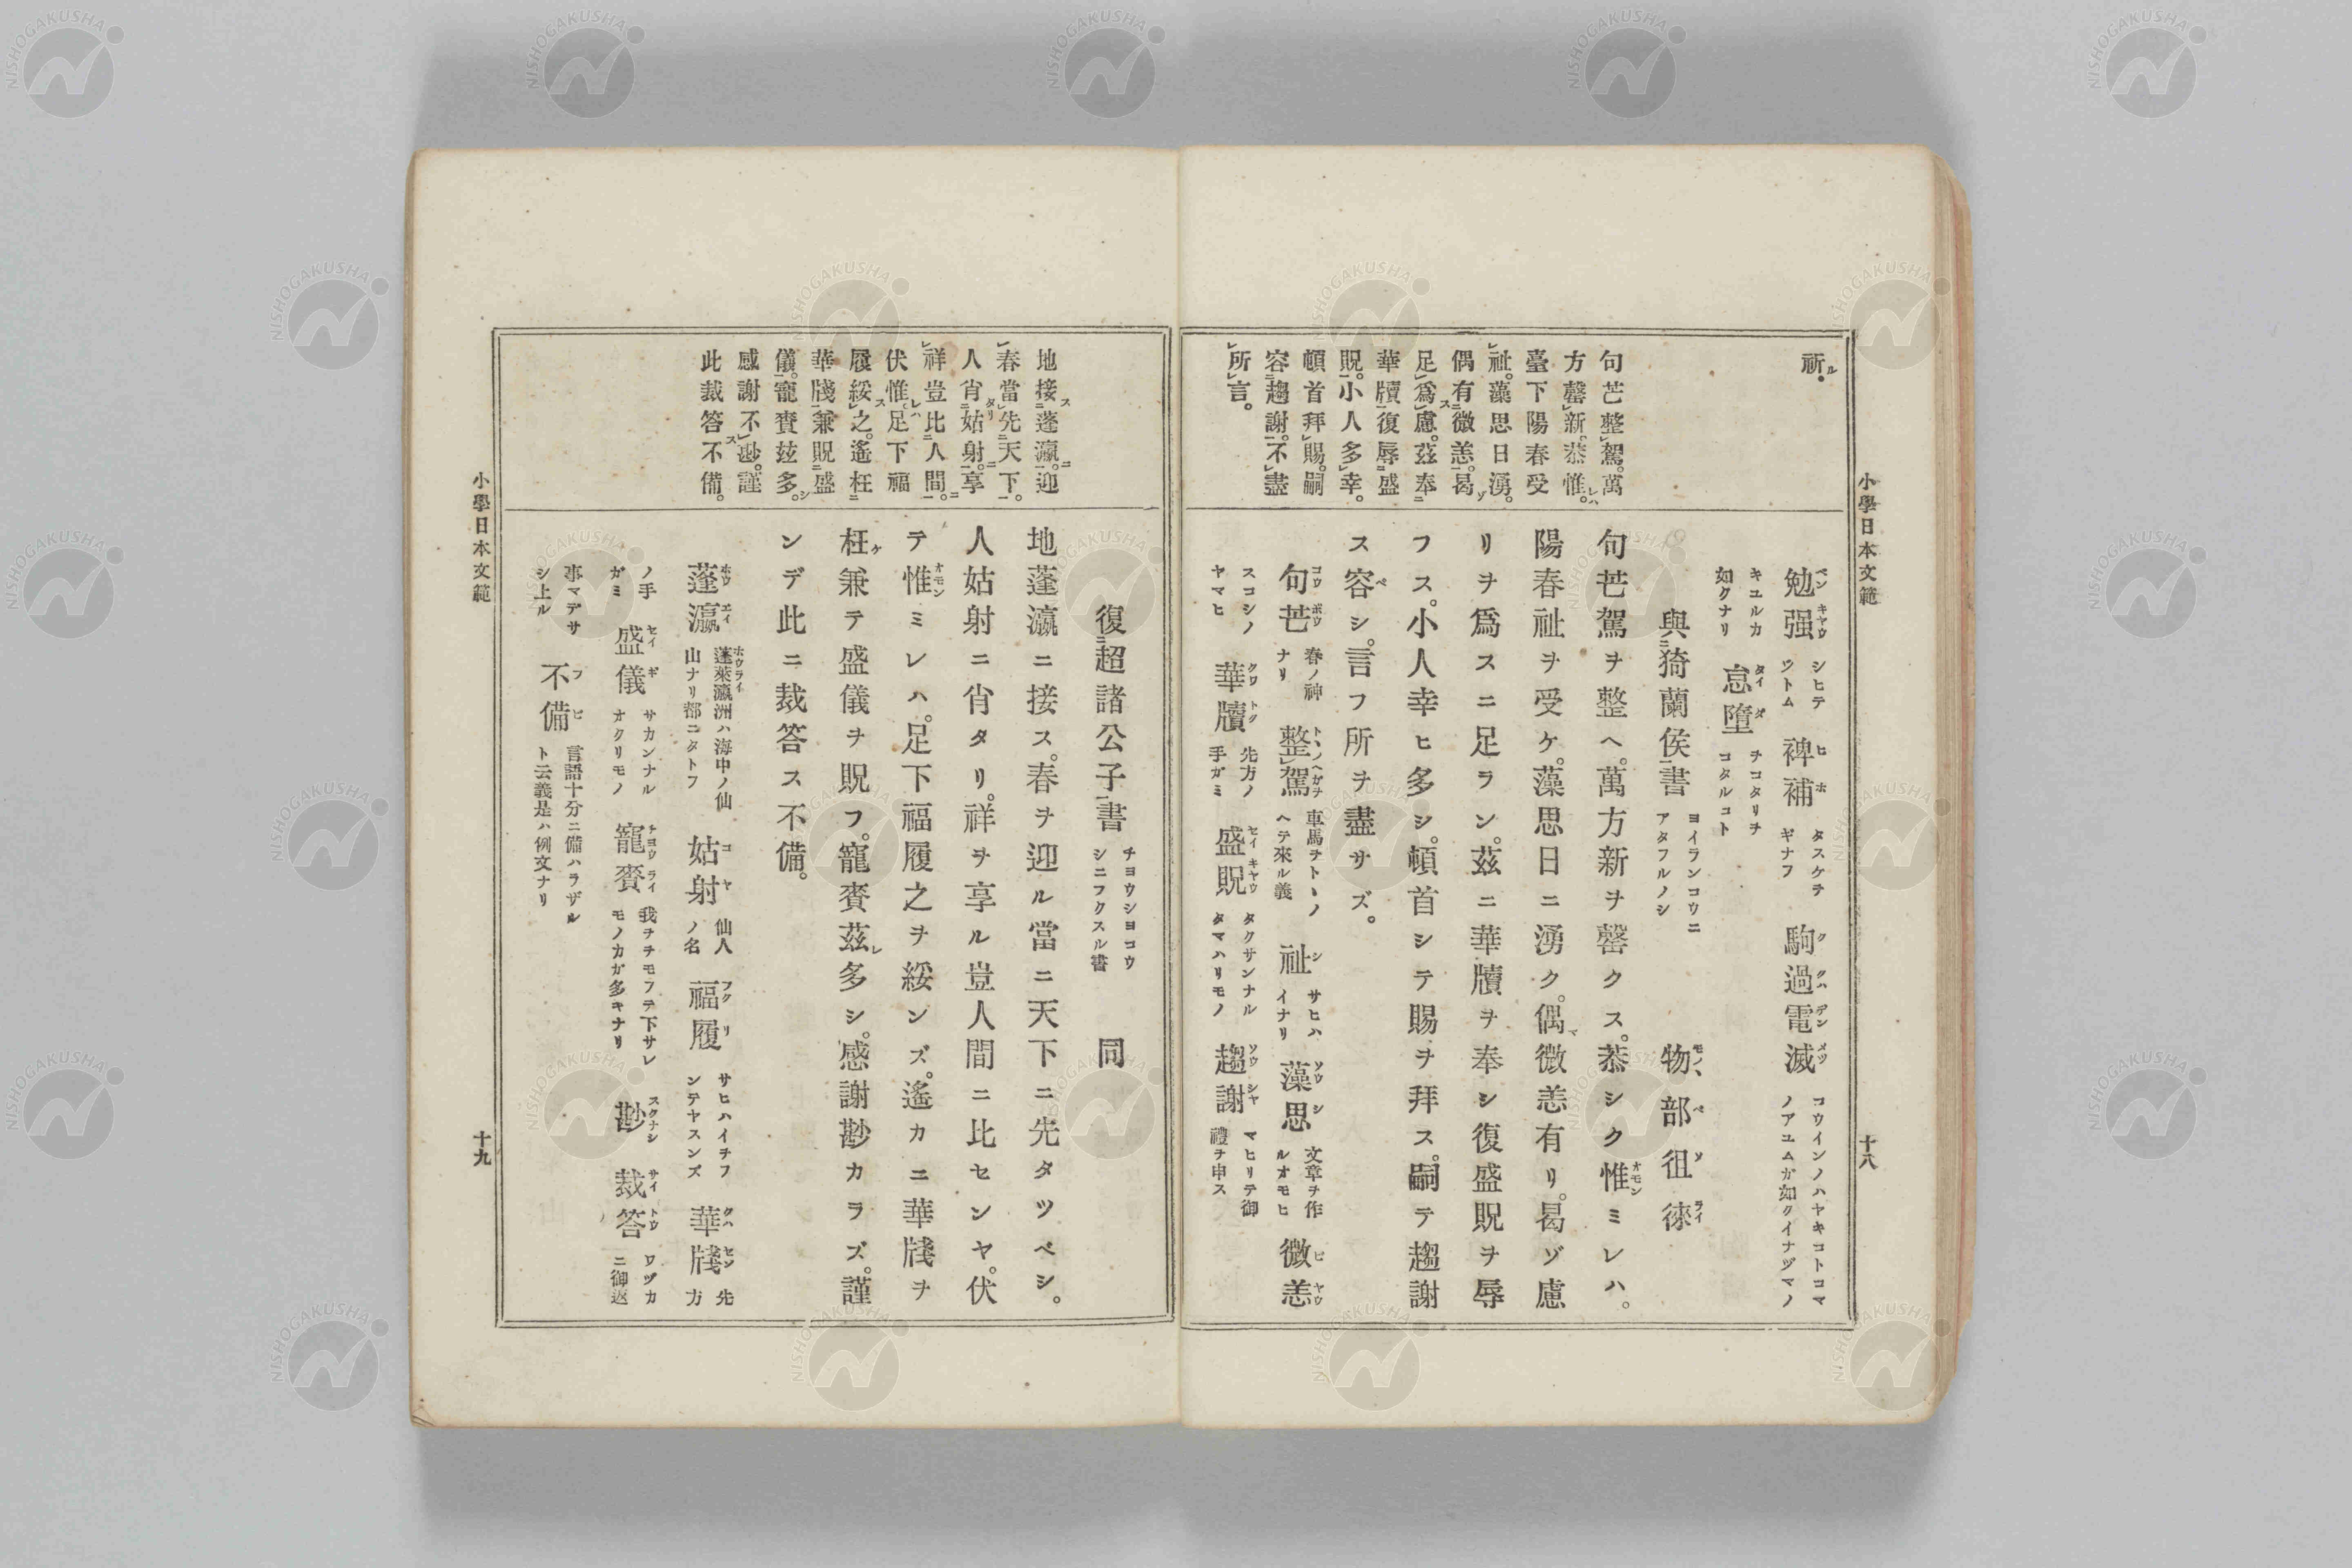 小學日本文範
十八
祈ル。
句芒整駕。萬
方罄新。恭惟レハ。
臺下陽春受
祉。藻思日湧。
偶有微恙。曷ゾ
足爲慮。茲奉
華牘復辱盛
貺。小人多幸。
頓首拜賜。嗣
容趨謝。不盡
所言。
勉强 シヒテツトム 裨補 タスケテギナフ 駒過電滅 コウインノハヤキコトコマノアユムガ如クイナヅマノ
キユルカ如クナリ 怠墮 ヲコタリヲコタルコト
與猗蘭侯書 ヨイランコウニアタフルノシ 物部徂徠
句芒駕ヲ整ヘ。萬方新ヲ罄クス。恭シク惟ミレハ。
陽春祉ヲ受ケ。藻思日ニ湧ク。偶マ微恙有リ。曷ゾ慮
リヲ爲スニ足ラン。茲ニ華牘ヲ奉シ復盛貺ヲ辱
フス。小人幸ヒ多シ。頓首シテ賜ヲ拜ス。嗣テ趨謝
ス容ベシ。言フ所ヲ盡サズ。
句芒 春ノ神ナリ 整駕 車馬ヲトヽノヘテ來ル義 祉 サヒハイナリ 藻思 文章ヲ作ルオモヒ 微恙
スコシノヤマヒ 華牘 先方ノ手ガミ 盛貺 タクサンナルタマハリモノ 趨謝 マヒリテ御禮ヲ申ス
地接ス蓬瀛ニ。迎
春當先天下。
人肖タリ姑射ニ。享
祥豈比人間ニ。
伏惟レハ。足下福
履綏ス之。遙枉
華牋兼貺盛
儀。寵賚玆多シ。
感謝不尠ス。謹
此裁答不備。
復超諸公子書 チヨウシヨコウシニフクスル書 同
地蓬瀛ニ接ス。春ヲ迎ル當ニ天下ニ先タツベシ。
人姑射ニ肖タリ。祥ヲ享ル豈人間ニ比センヤ。伏
テ惟ミレハ。足下福履之ヲ綏ンズ。遙カニ華牋ヲ
枉ケ兼テ盛儀ヲ貺フ。寵賚茲レ多シ。感謝尠カラズ。謹
ンデ此ニ裁答ス不備。
蓬瀛 蓬萊瀛洲ハ海中ノ仙山ナリ都ニタトフ 姑射 仙人ノ名 福履 サヒハイヲフンテヤスンズ 華牋 先方
ノ手ガミ 盛儀 サカンナルオクリモノ 寵賚 我ヲヲモフテ下サレモノカガ多キナリ 尠 スクナシ 裁答 ワヅカニ御返
事マデサシ上ル 不備 言語十分ニ備ハラザルト云義是ハ例文ナリ
小學日本文範
十九